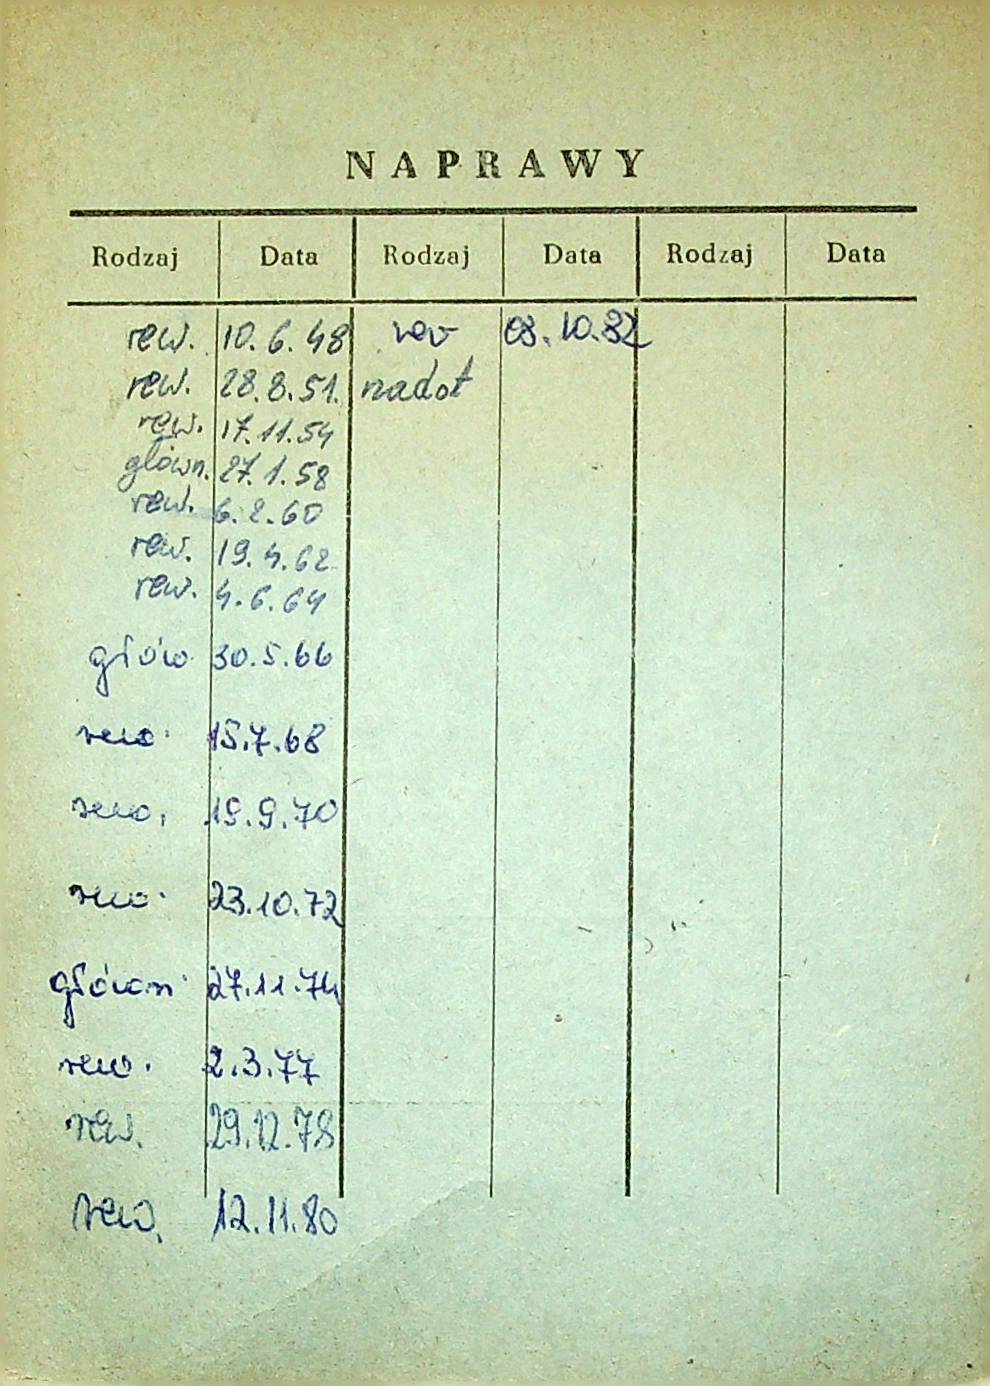 NAPRAWY
Rodzaj Data Rodzaj Data Rodzaj Data
rew. 10.6.48 rev 03.10.82
rew. 28.8.51. nadot
rew. 17.11.54
główn. 27.1.58
rew. 6.2.60
rew. 19.4.62
rew. 4.6.64
głów 30.5.66
rew. 15.7.68
rew. 19.9.70
rew. 23.10.72
główn. 27.11.74
rew. 2.3.77
rew. 29.12.78
rew. 12.11.80